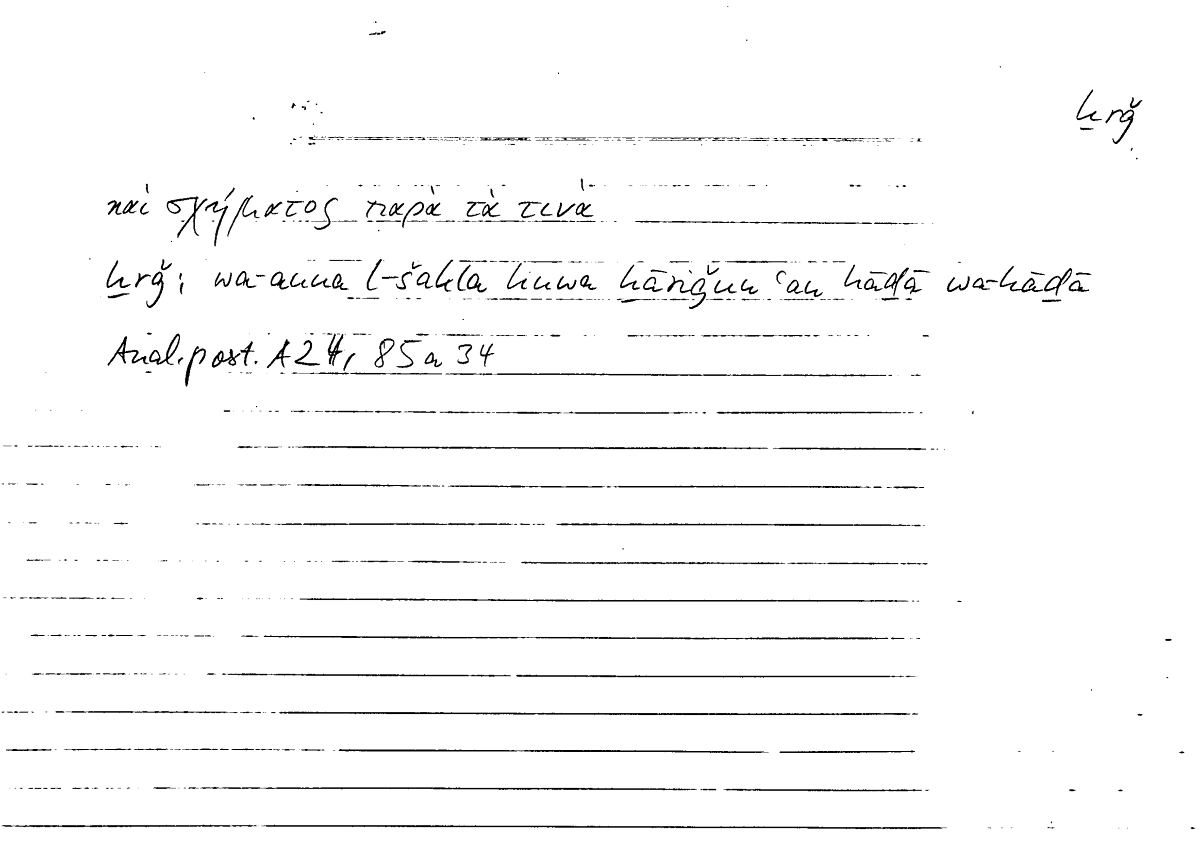 ḫrǧ
καὶ σχήματος παρὰ τὰ τινὰ
ḫrǧ; wa-anna l-šakla huwa ḫāriǧun ʿan hāḏā wa-hāḏā
Anal. post. A 24, 85 a 34